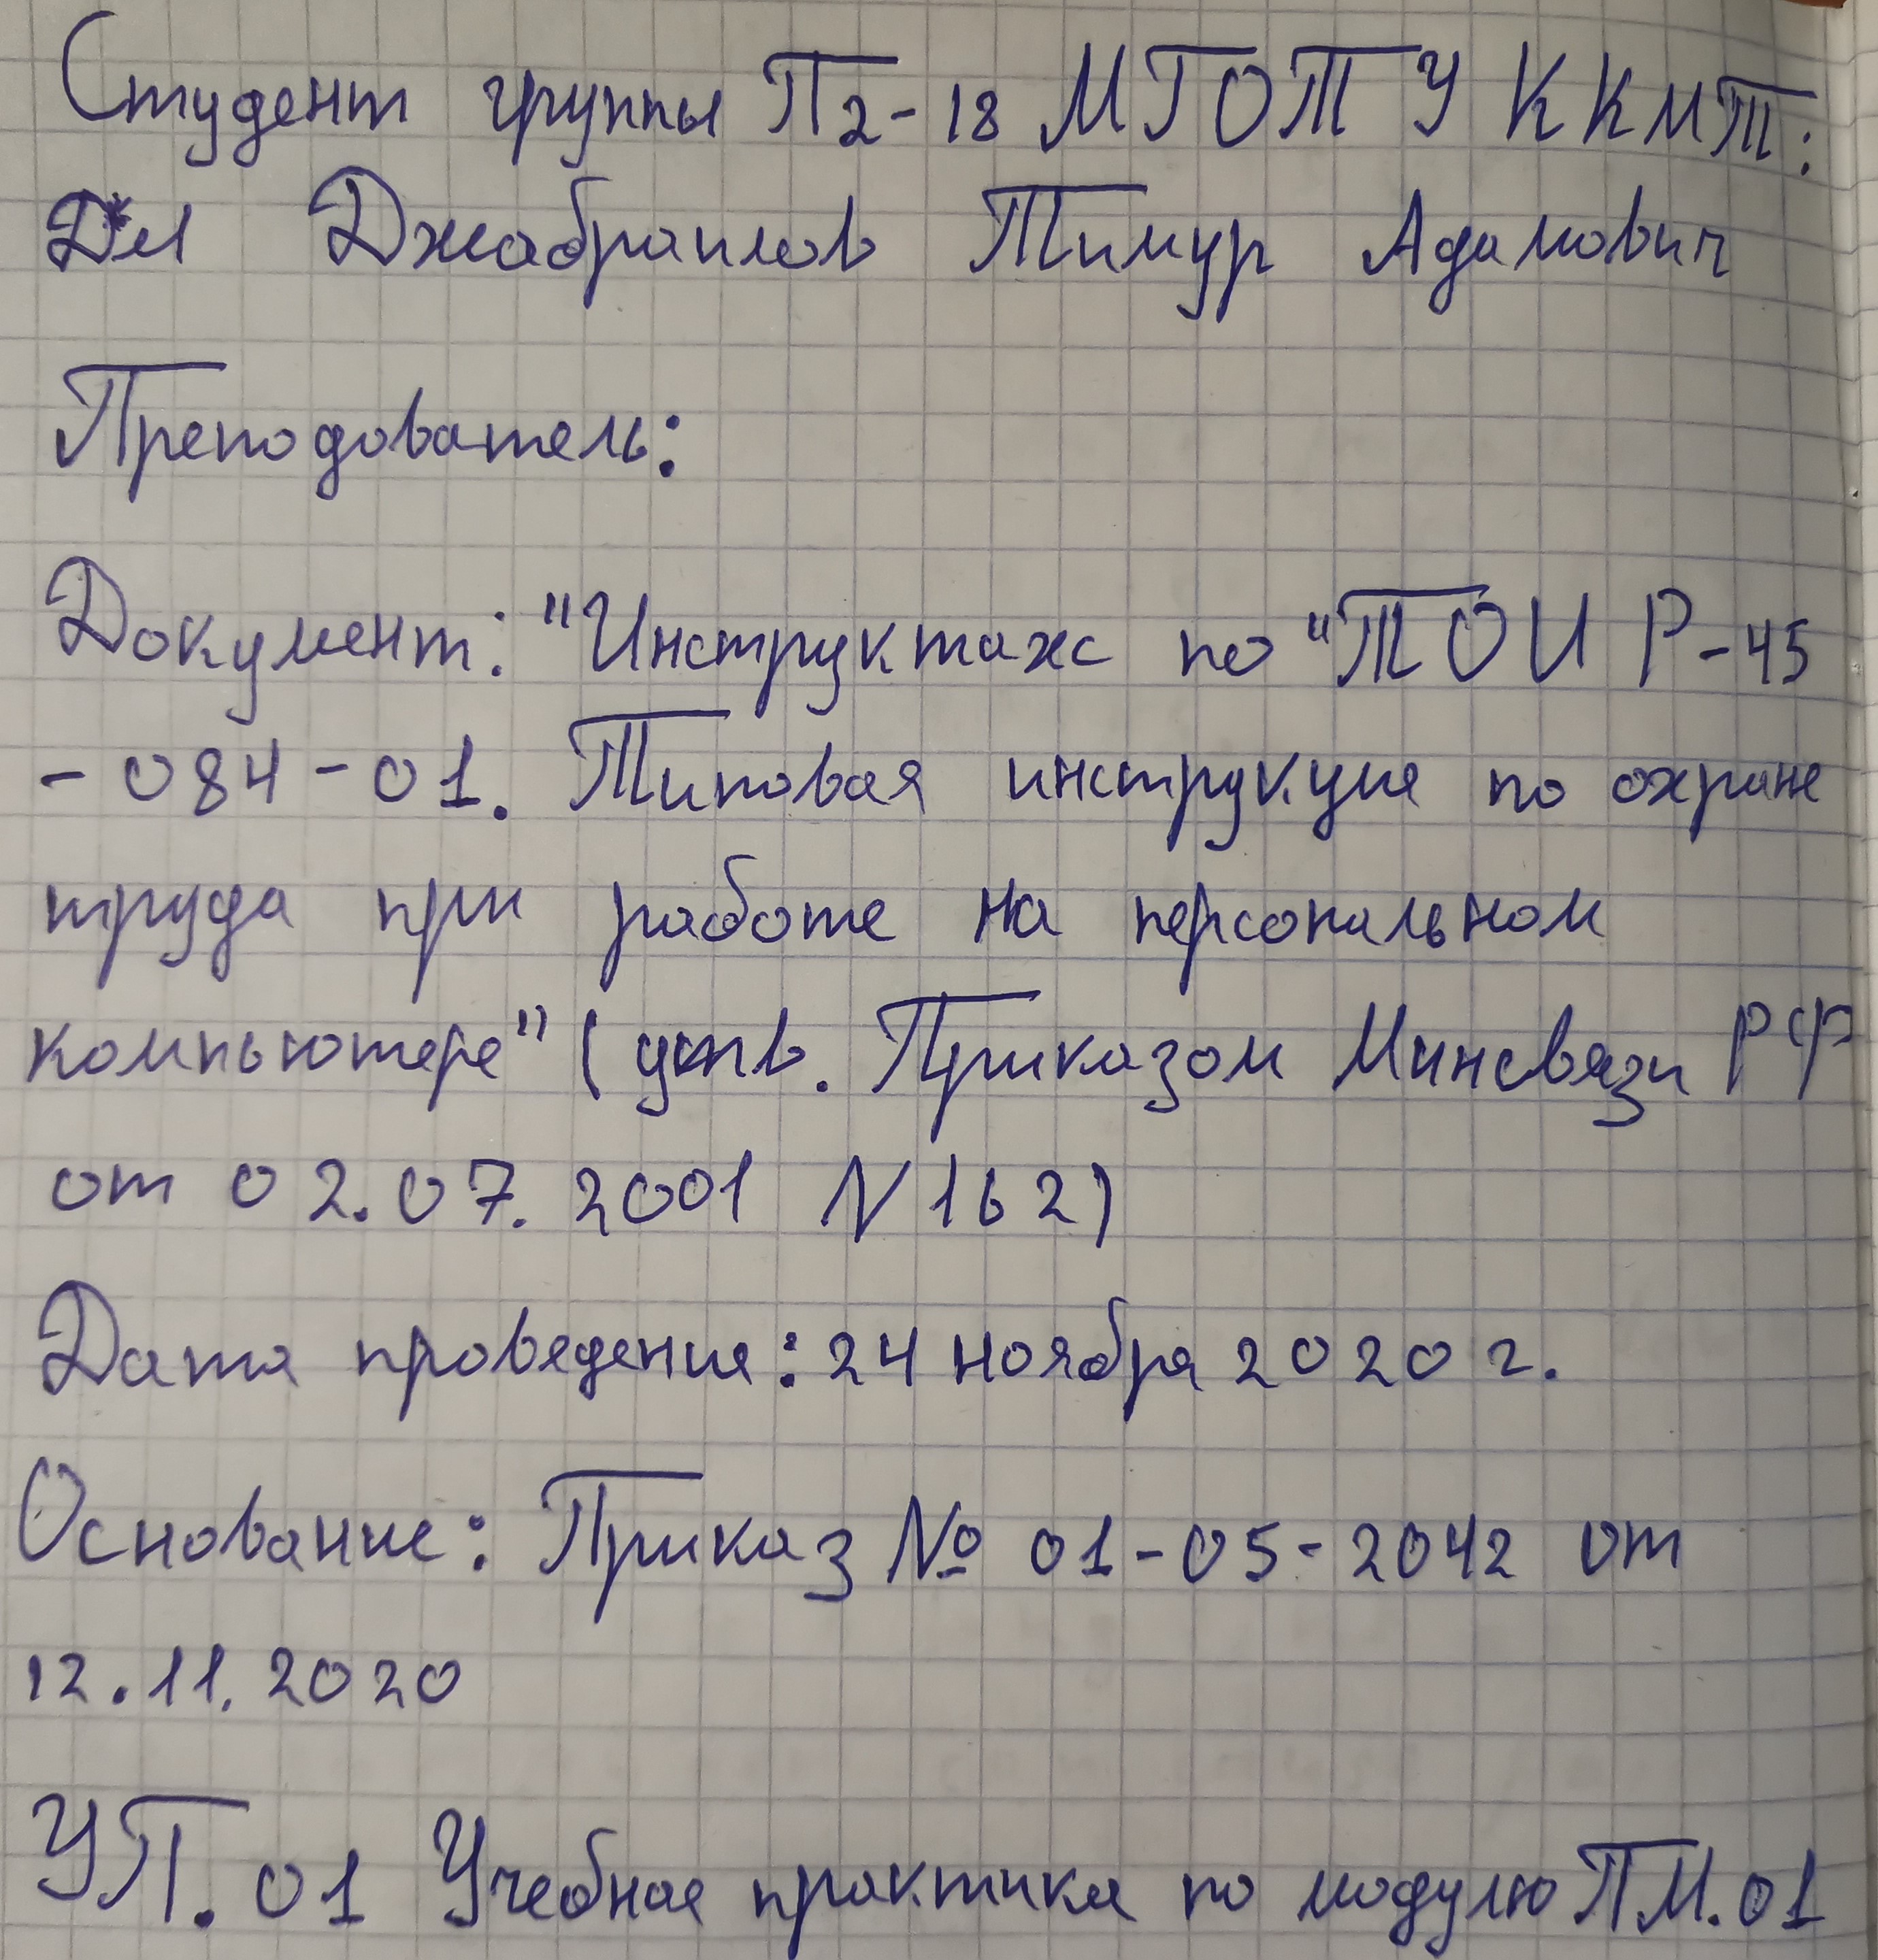 Студент группы П2-18 МГОТУ ККМТ:
Джабраилов Тимур Адамович
Преподователь:
Документ: "Инструктаж по "ТОИ Р-45
-084-01. Типовая инструкция по охране
труда при работе на персональном
компьютере" (утв. Приказом Минсвязи РФ
от 02.07.2001 N 162)
Дата проведения: 24 ноября 2020 г.
Основание: Приказ № 01-05-2042 от
12.11.2020
УП.01 Учебная практика по модулю ПМ.01